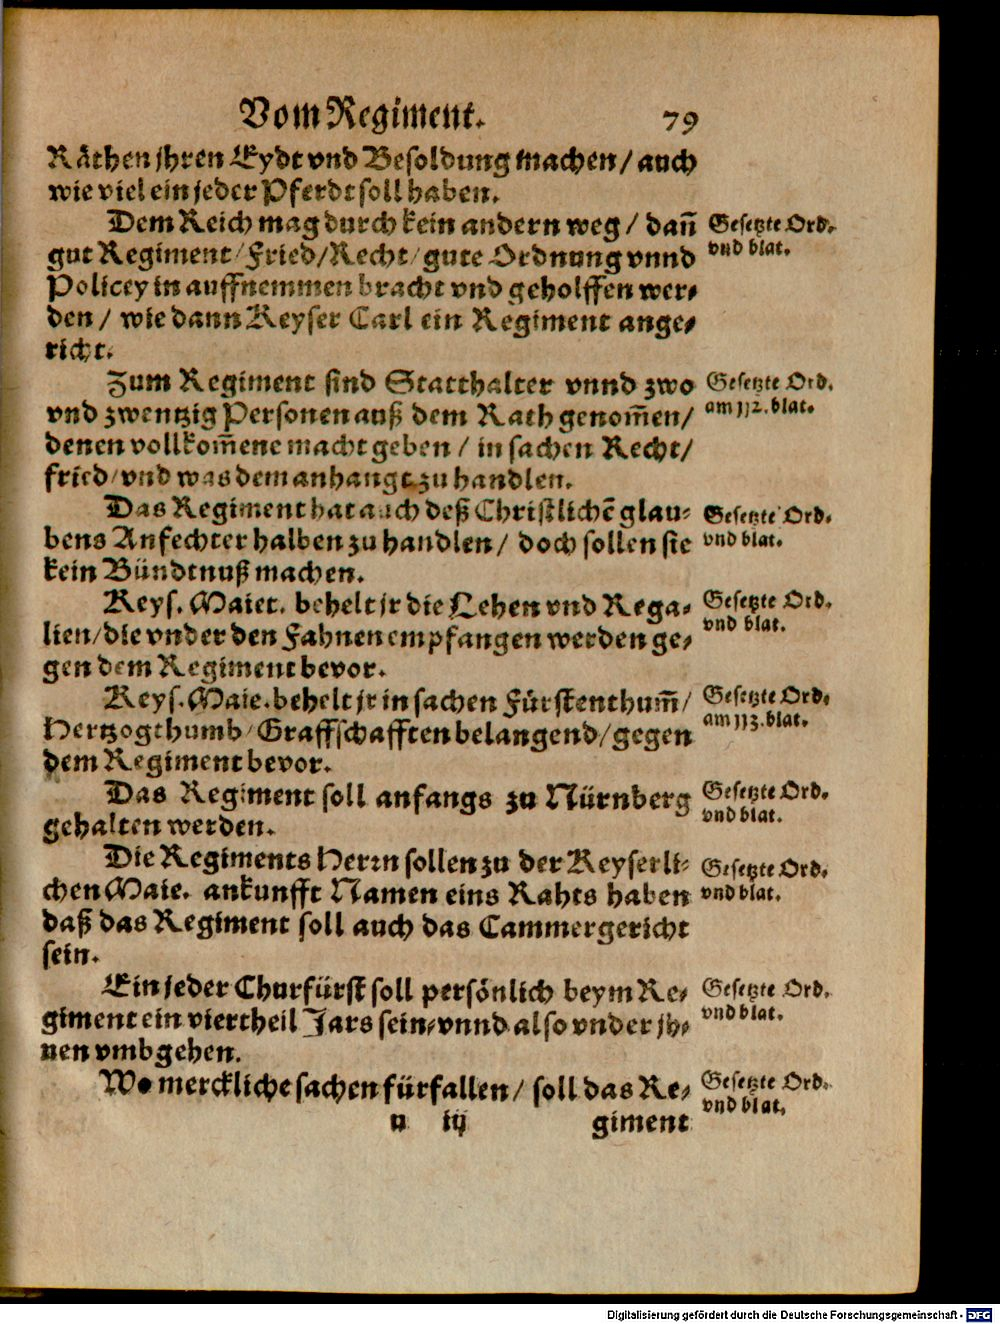 Vom Regiment. 79
Räthen jhren Eydt vnd Besoldung machen/ auch
wie viel ein jeder Pferdt soll haben.
Dem Reich mag durch kein andern weg/ dañ
gut Regiment/ Fried/ Recht/ gute Ordnung vnnd
Policey in auffnemmen bracht vnd geholffen wer-
den/ wie dann Keyser Carl ein Regiment ange-
richt.
Gesetzte Ord.
vnd blat.
Zum Regiment sind Statthalter vnnd zwo
vnd zwentzig Personen auß dem Rath genom̃en/
denen vollkom̃ene macht geben/ in sachen Recht/
fried/ vnd was dem anhangt zu handlen.
Gesetzte Ord.
am 112. blat.
Das Regiment hat auch deß Christlichẽ glau-
bens Anfechter halben zu handlen/ doch sollen sie
kein Bündtnuß machen.
Gesetzte Ord.
vnd blat.
Keys. Maiet. behelt jr die Lehen vnd Rega-
lien/ die vnder den Fahnen empfangen werden ge-
gen dem Regiment bevor.
Gesetzte Ord.
vnd blat.
Keys. Maie. behelt jr in sachen Fürstenthum̃/
Hertzogthumb/ Graffschafften belangend/ gegen
dem Regiment bevor.
Gesetzte Ord.
am 113. blat.
Das Regiment soll anfangs zu Nürnberg
gehalten werden.
Gesetzte Ord.
vnd blat.
Die Regiments Herrn sollen zu der Keyserli-
chen Maie. ankunfft Namen eins Rahts haben
daß das Regiment soll auch das Cammergericht
sein.
Gesetzte Ord.
vnd blat.
Ein jeder Churfürst soll persönlich beym Re-
giment ein viertheil Jars sein/ vnnd also vnder jh-
nen vmbgehen.
Gesetzte Ord.
vnd blat.
Wo merckliche sachen fürfallen/ soll das Re-
Gesetzte Ord.
vnd blat.
u iij giment
Digitalisierung gefördert durch die Deutsche Forschungsgemeinschaft - DFG